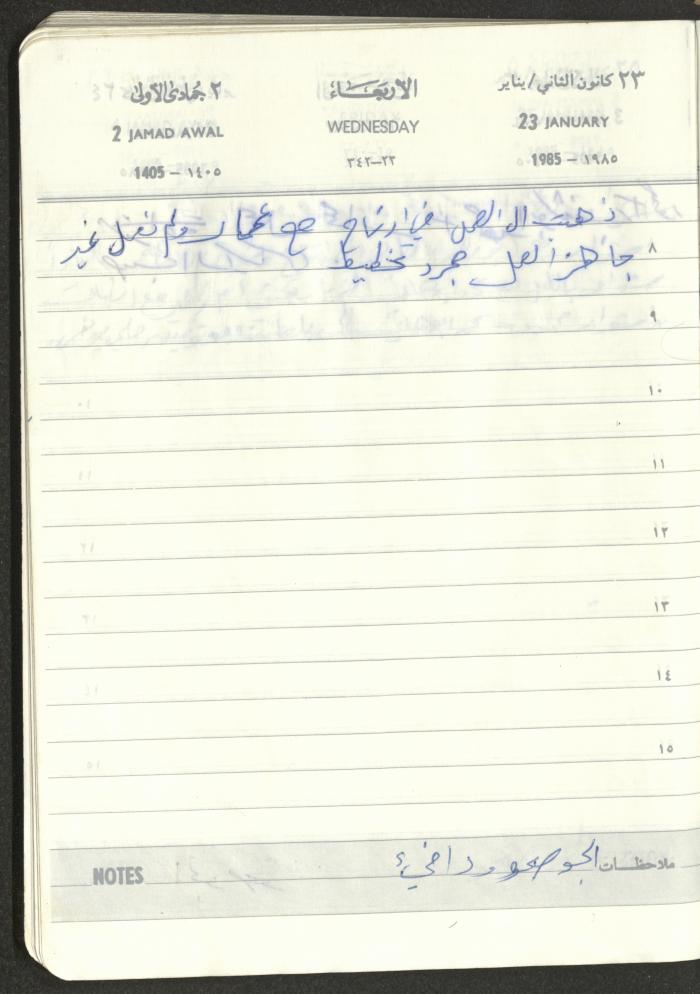 ٢٣ كانون الثاني/يناير
الأربعاء
٢ جمادى الأولى
23 JANUARY
WEDNESDAY
2 JAMAD AWAL
1985 – ١٩٨٥
٢٣–٣٤٢
1405 – ١٤٠٥
ذهبت الى العمل في ارتاح مع عمار ولم نعمل غير
٨
جاهز العمل مجرد تخطيط
٩
١٠
١١
١٢
١٣
١٤
١٥
ملاحظات الجو صحو ودافيء
NOTES